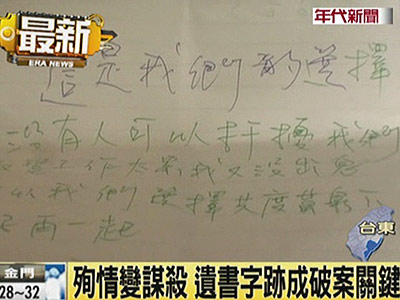 年代新聞
最新
ERA NEWS
這是我們的選擇
沒有人可以干擾我們
工作太累我又沒出息
以我們選擇共度黃泉下
兩一起
台東
金門
28~32
殉情變謀殺 遺書字跡成破案關鍵